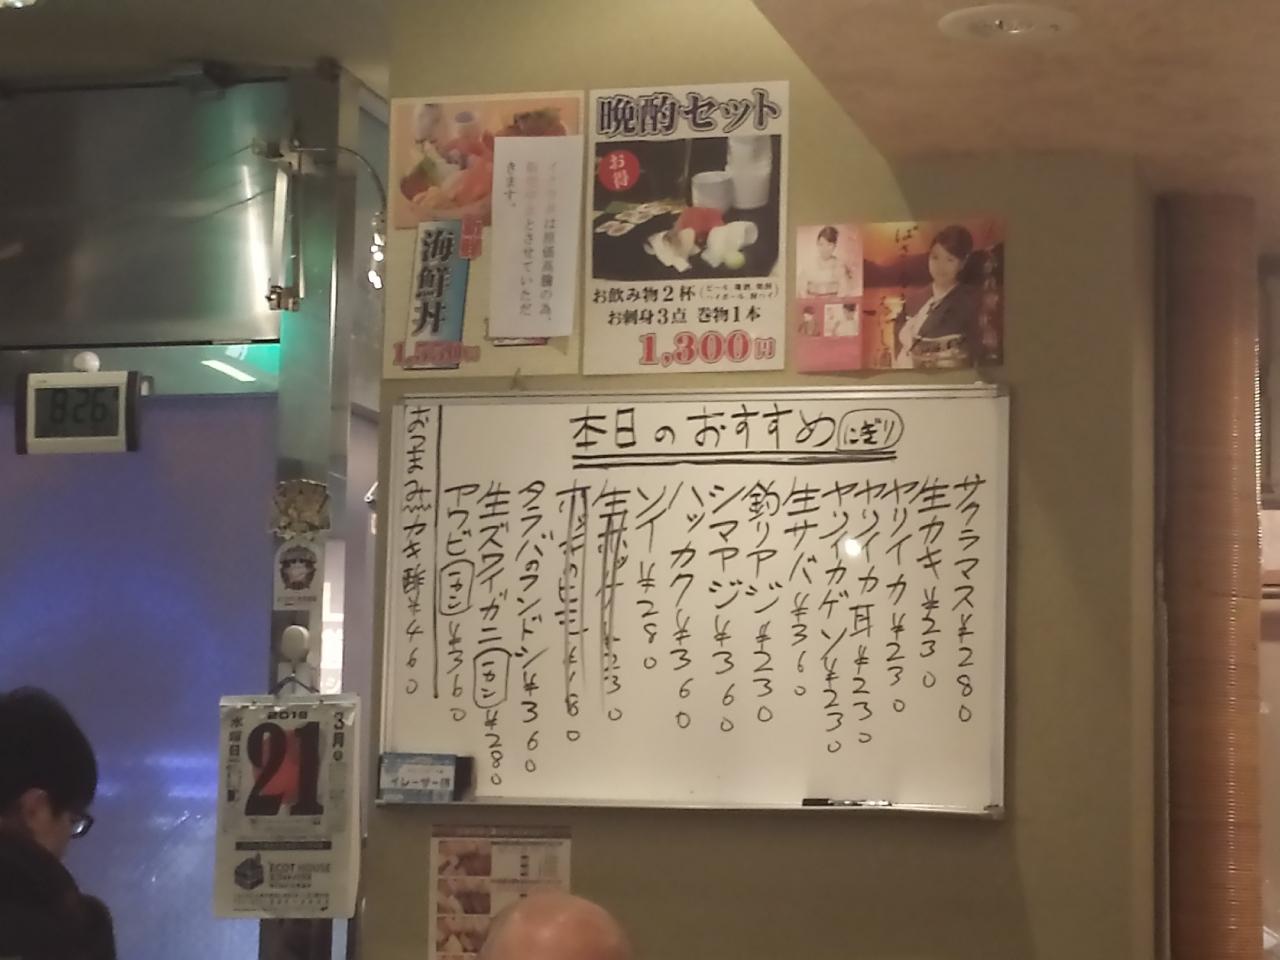 晩酌セット
お得
お飲み物2杯
お刺身3点 巻物1本
1,300円
海鮮丼
は原価高騰の為、
とさせていただ
きます。
本日のおすすめ
にぎり
サクラマス¥280
生カキ¥230
ヤリイカ¥230
ヤリイカ耳¥230
ヤリイカゲソ¥230
生サバ¥360
釣リアジ¥230
シマアジ¥360
ハッカク¥360
ソイ¥280
タラバのフンドシ¥360
生ズワイガニ(ニカン)¥280
アワビ(ニカン)¥360
おつまみ
カキ酢¥460
8:26
2018
3月
21
水曜日
ECOT HOUSE
イレーザー